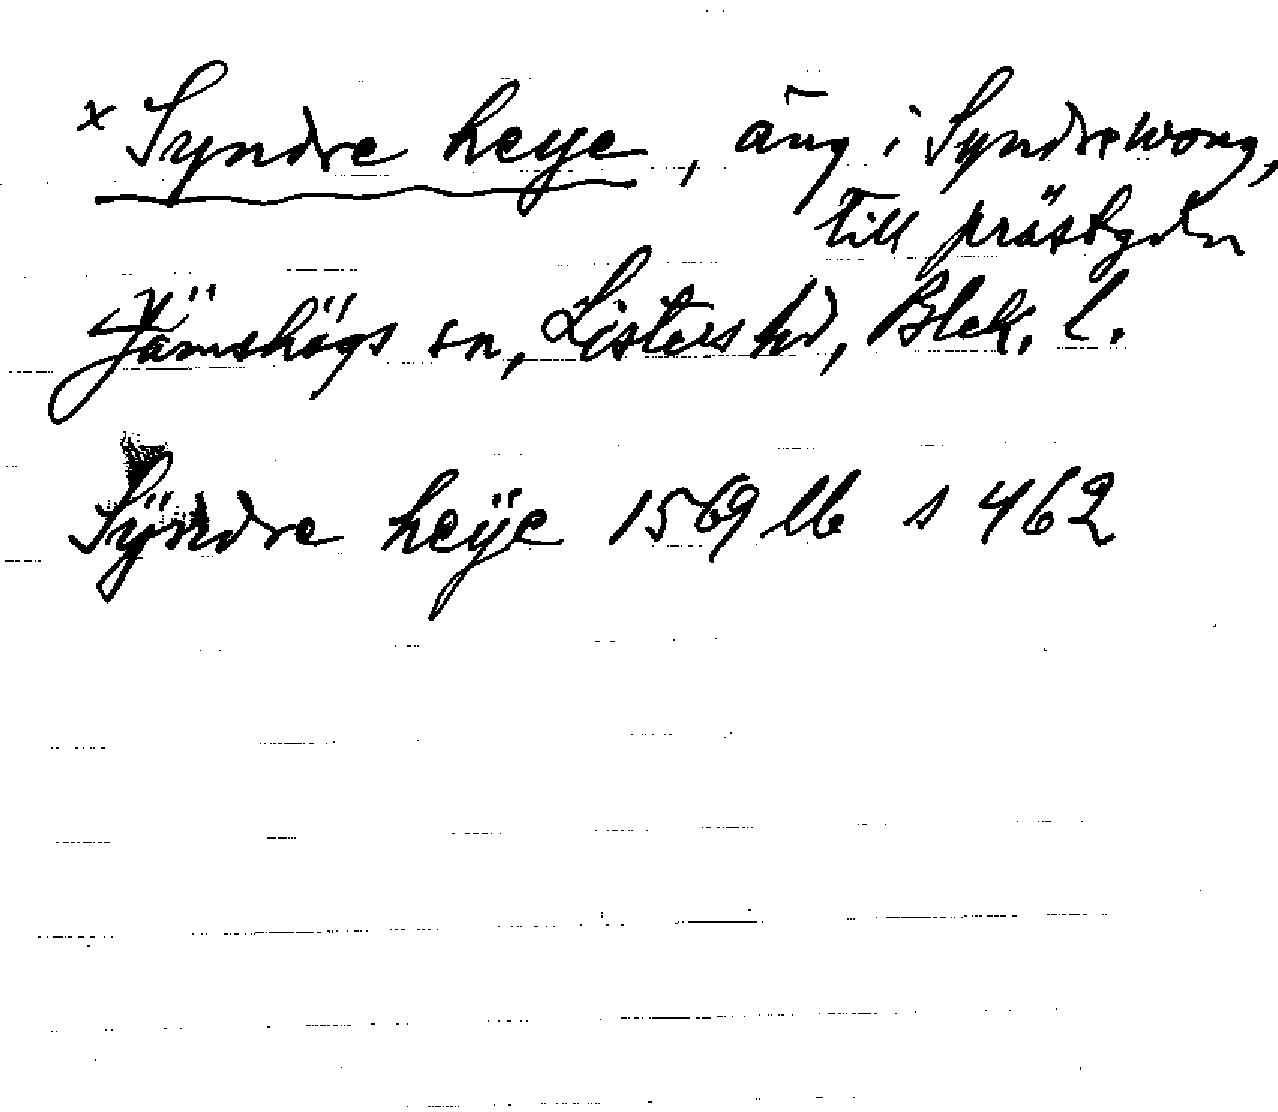 x Syndre heye, äng i Syndrewong,
till prästgdn
Jämshögs sn, Listers hd, Blek. l.
Sÿndre heÿe 1569 lb s 462